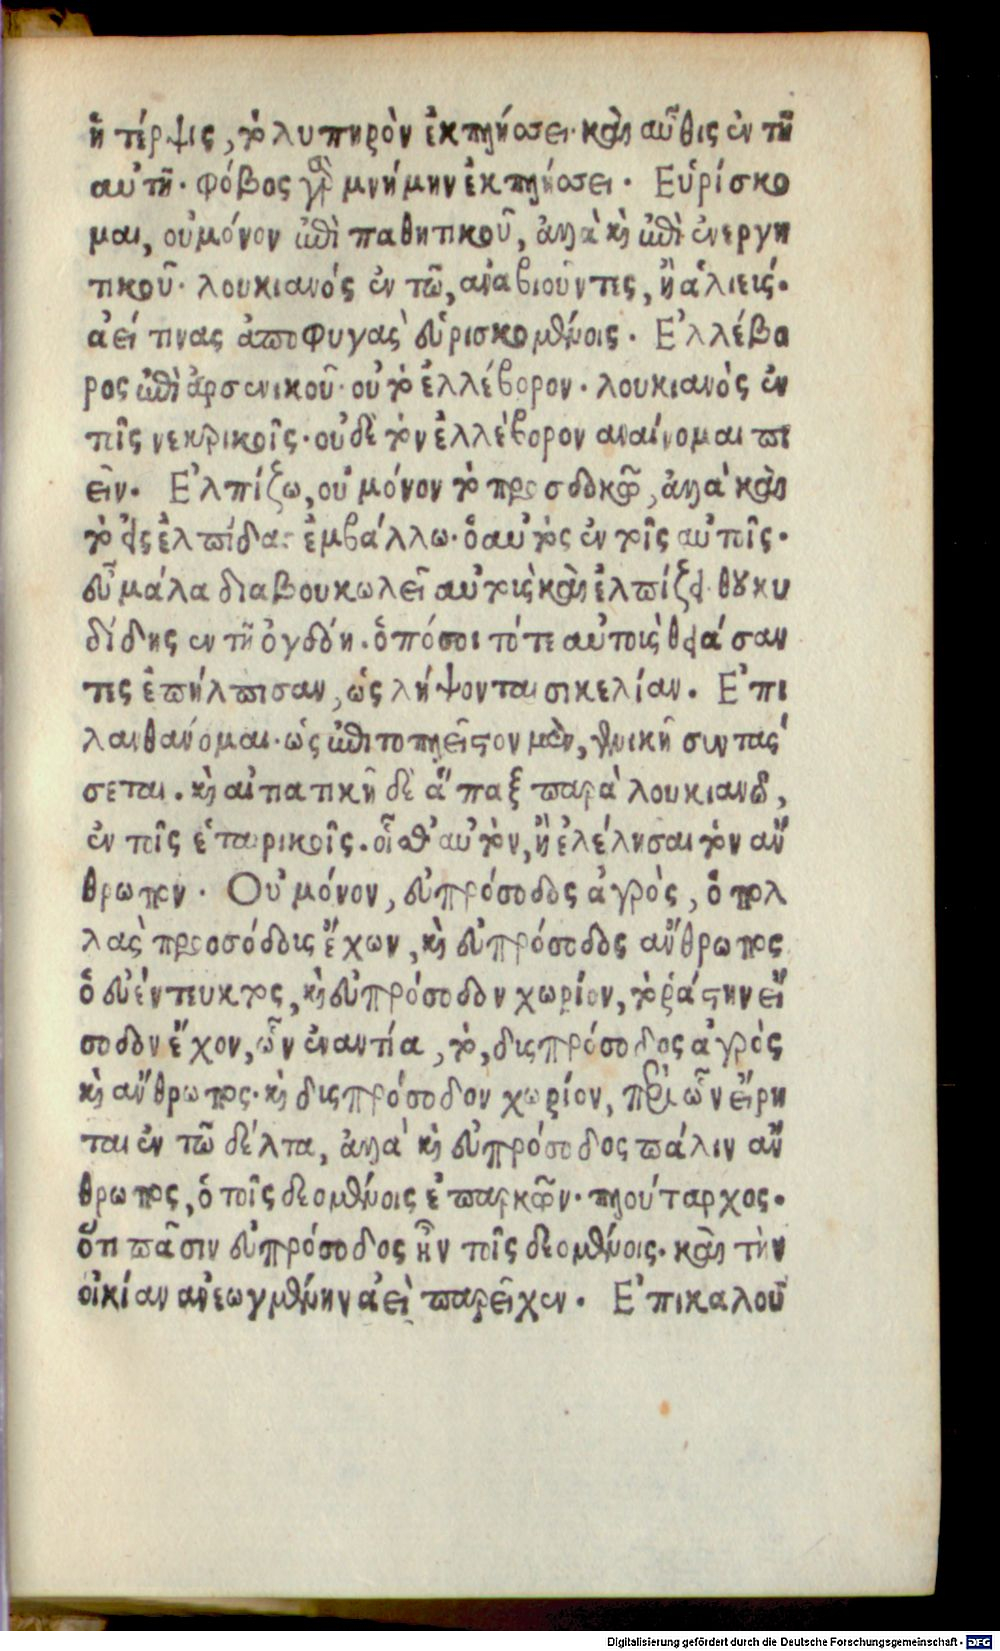 ἢ τέρψις, τὸ λυπηρὸν ἐκπλήσσει· καὶ αὖθις ἐν τῇ
αὐτῇ· φόβος γὰρ μνήμην ἐκπλήσσει· Εὑρίσκο
μαι, οὐ μόνον ἐπὶ παθητικοῦ, ἀλλὰ καὶ ἐπὶ ἐνεργη
τικοῦ· λουκιανός ἐν τῶ, ἀναβιοῦντες, ἢ ἁλιεῖς·
ἀεί τινας ἀποφυγὰς εὑρισκομένοις· Ἐλλέβο
ρος ἐπὶ ἀρσενικοῦ· οὐ τὸ ἑλλέβορον· λουκιανὸς ἐν
τοῖς νεκρικοῖς· οὐδὲ τὸν ἑλλέβορον ἀναίνομαι πι
εῖν· Ἐλπίζω, οὐ μόνον τὸ προσδοκῶ, ἀλλὰ καὶ
τὸ εἰς ἐλπίδας ἐμβάλλω· ὁ αὐτὸς ἐν τοῖς αὐτοῖς·
εὖ μάλα διαβουκωλεῖ αὐτοὺς καὶ ἐλπίζει· θουκυ
δίδης ἐν τῇ ὀγδόῃ· ὁπόσοι τότε αὐτοὺς θειάσαν
τες ἐπήλπισαν, ὡς λήψονται σικελίαν· Ἐπι
λανθάνομαι· ὡς ἐπιτοπλεῖστον μὲν, γενικῇ συντάσ
σεται· καὶ αἰτιατικῇ δὲ ἅπαξ παρὰ λουκιανοῦ,
ἐν τοῖς ἑταιρικοῖς· οἶσθ' αὐτὸν, ἢ ἐλέλησαι τὸν ἄν
θρωπον· Οὐ μόνον, εὐπρόσοδος ἀγρὸς, ὁ πολ
λὰς προσόδους ἔχων, καὶ εὐπρόσοδος ἄνθρωπος
ὁ εὐέντευκτος, καὶ εὐπρόσοδον χωρίον, τὸ ῥάστην εἴ
σοδον ἔχον, ὧν ἐναντία, τὸ, δυσπρόσοδος ἀγρὸς
καὶ ἄνθρωπος· καὶ δυσπρόσοδον χωρίον, περὶ ὧν εἴρη
ται ἐν τῶ δέλτα, ἀλλὰ καὶ εὐπρόσοδος πάλιν ἄν
θρωπος, ὁ τοῖς δεομένοις ἐπαρκῶν· πλούταρχος·
ὅτι πᾶσιν εὐπρόσοδος ἦν τοῖς δεομένοις· καὶ τὴν
οἰκίαν ἀνεωγμένην ἀεὶ παρεῖχεν· Ἐπικαλοῦ
Digitalisierung gefördert durch die Deutsche Forschungsgemeinschaft - DFG